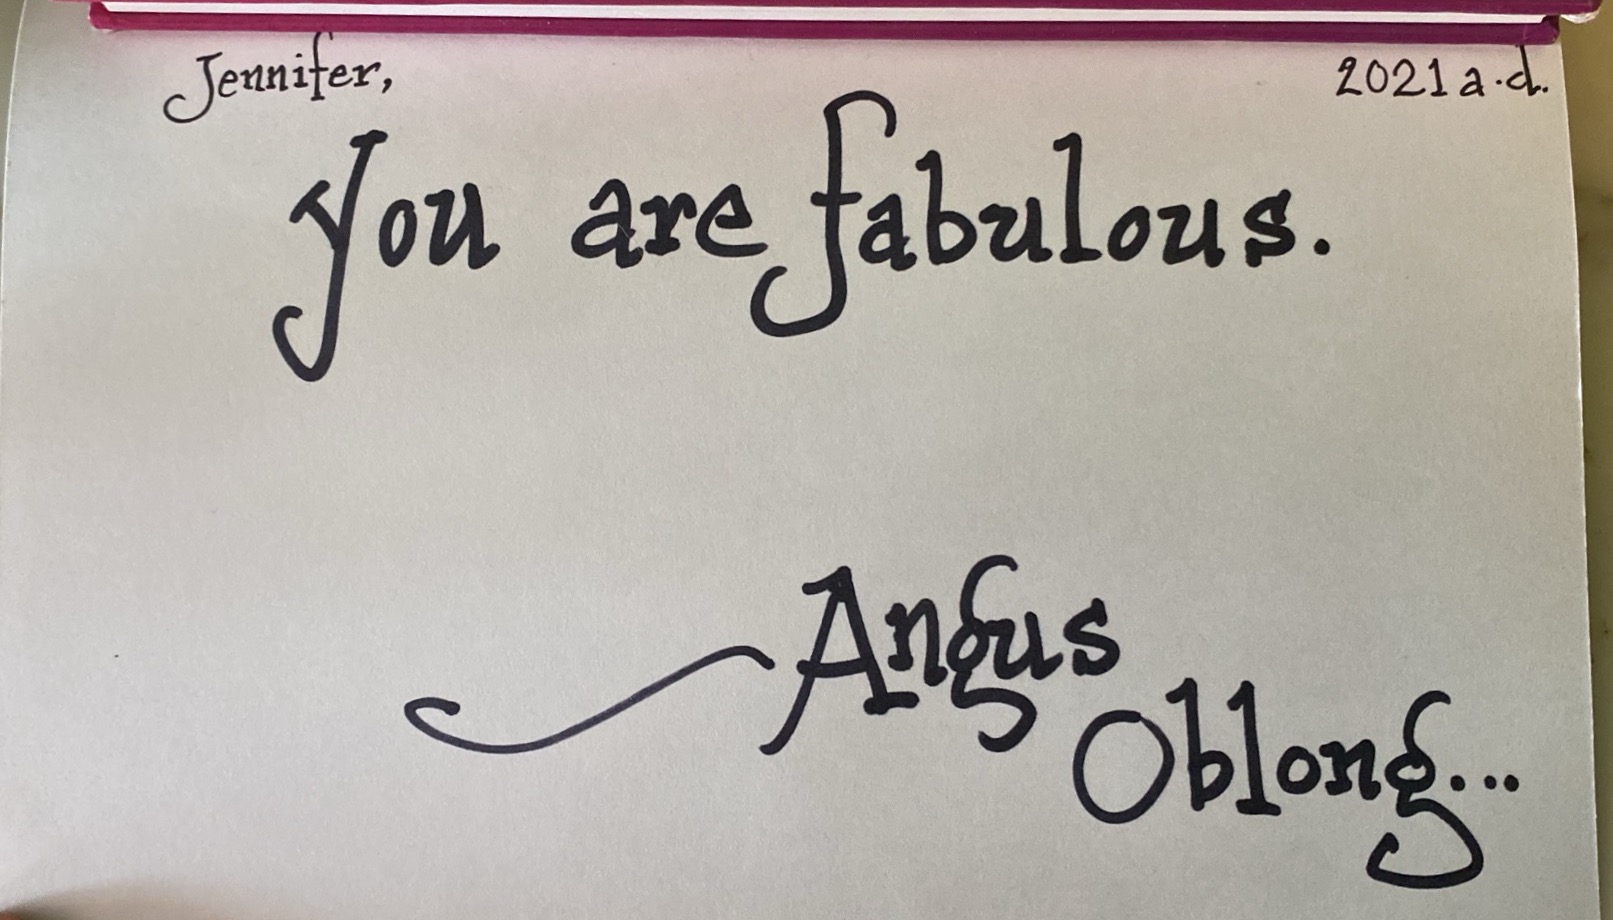 Jennifer, 2021 a.d.
You are fabulous.
Angus
Oblong...